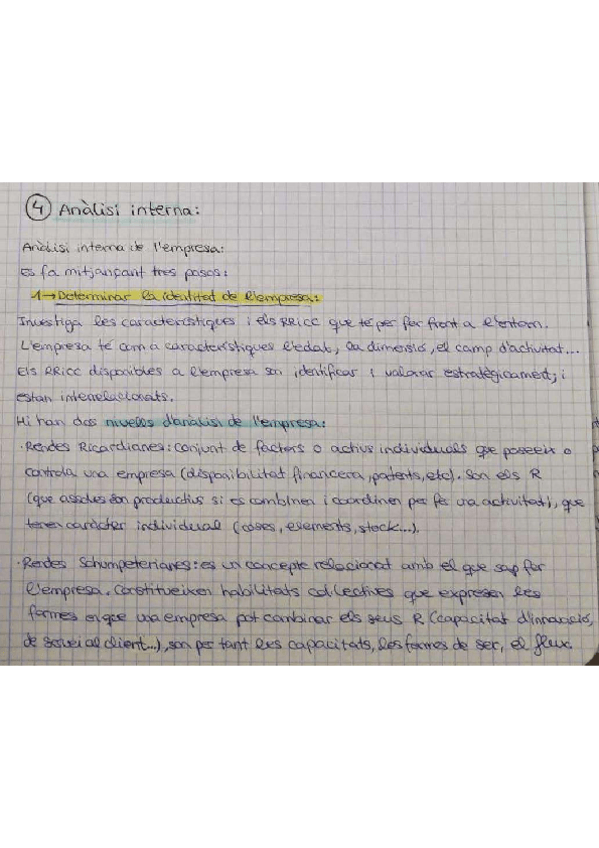 4 Anàlisi interna:
Anàlisi interna de l'empresa:
es fa mitjançant tres pasos:
1→Determinar la identitat de l'empresa:
Investiga les característiques i els RRICC que té per fer front a l'entorn.
L'empresa té com a característiques l'edat, la dimensió, el camp d'activitat...
Els RRICC disponibles a l'empresa son identificar i valorar estratègicament, i
estan interrelacionats.
Hi han dos nivells d'anàlisi de l'empresa:
·Rendes Ricardianes: conjunt de factors o actius individuals que poseeix o
controla una empresa (disponibilitat financera, patents, etc). Son els R
(que assoles son productius si es combinen i coordinen per fer una activitat), que
tenen caràcter individual (coses, elements, stock...).
·Rendes Schumpeterianes: es un concepte relacionat amb el que sap fer
l'empresa. Constitueixen habilitats col·lectives que expresen les
formes en que una empresa pot combinar els seus R (capacitat d'innovació,
de servei al client...), son per tant les capacitats, les formes de ser, el flux.